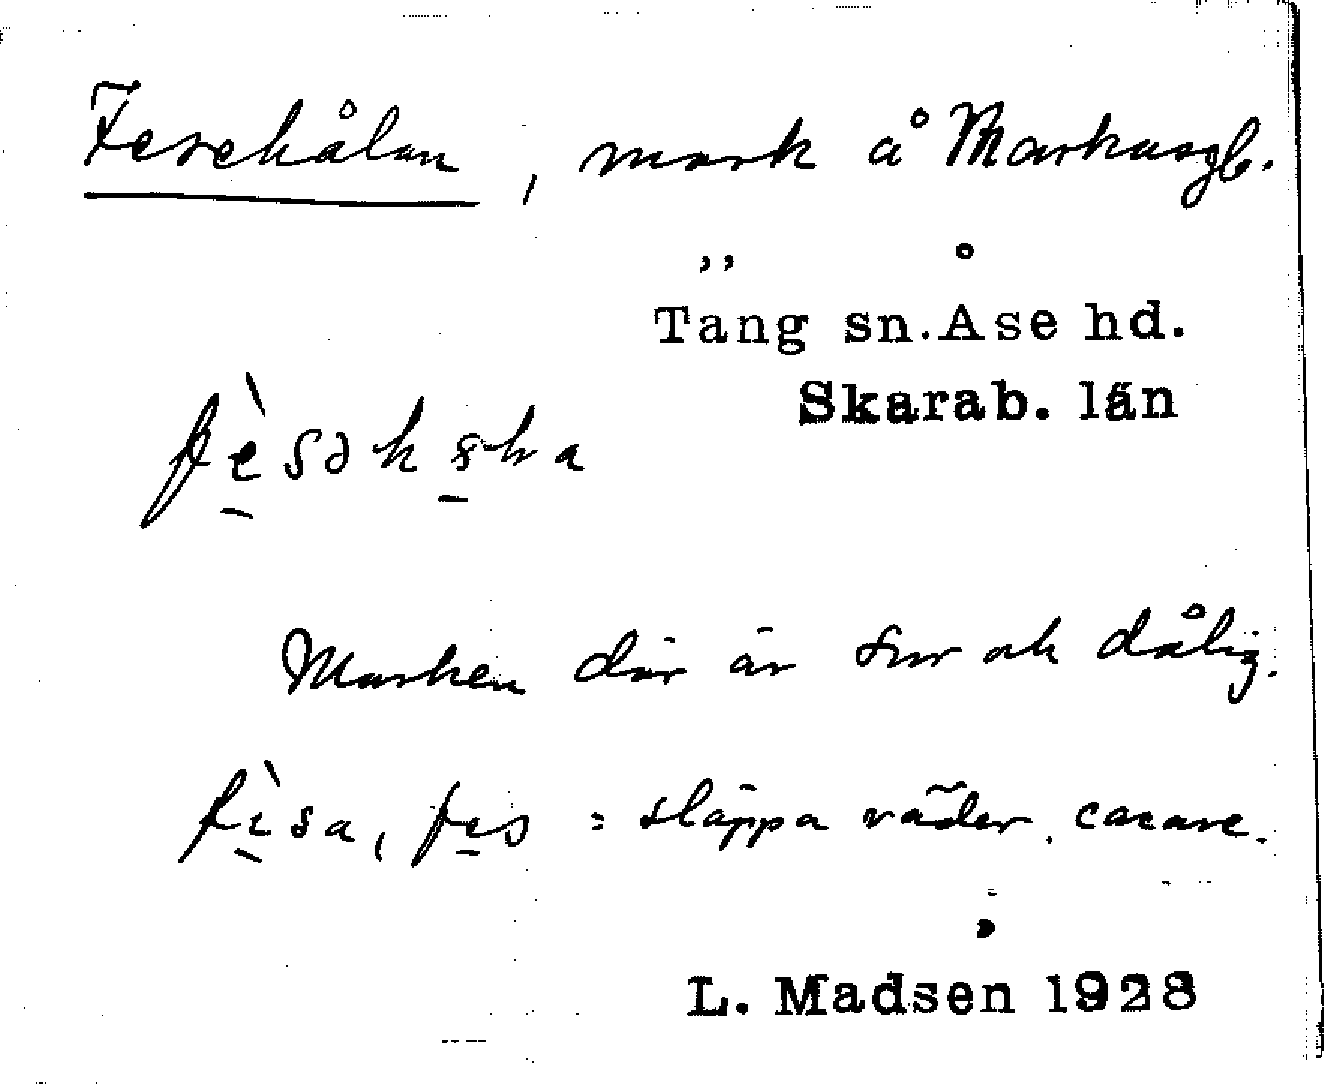 Fesehålan, mark å Markusgb.
„
Tang sn. Åse hd.
Skarab. län
Marken där är sur ok dålig.
fìsa, fes = släppa väder. cacare.
L. Madsen 1928